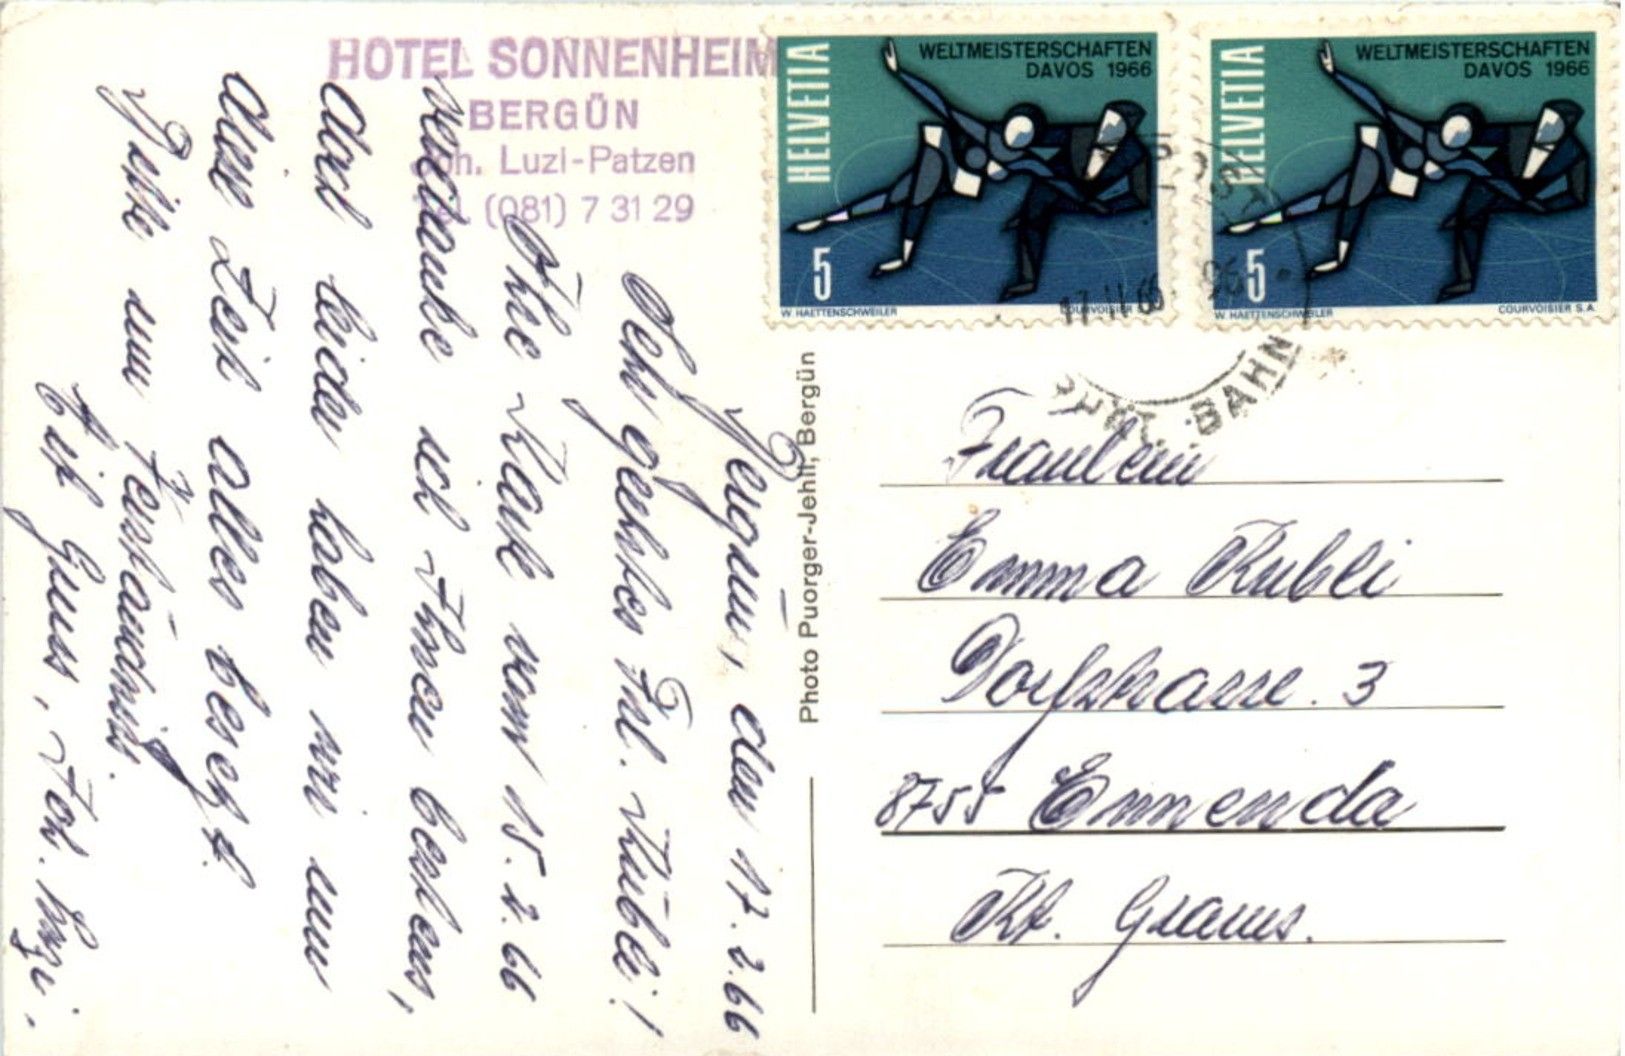 HOTEL SONNENHEIM
BERGÜN
Joh. Luzi-Patzen
Tel. (081) 7 31 29
HELVETIA
WELTMEISTERSCHAFTEN
DAVOS 1966
5
W. HAETTENSCHWEILER
COURVOISIER S.A.
HELVETIA
WELTMEISTERSCHAFTEN
DAVOS 1966
5
W. HAETTENSCHWEILER
COURVOISIER S.A.
17. II. 66
BAHN
Bergün, den 17.2.66
Sehr geehrtes Frl. Kubli!
Ihre Karte vom 15.2.66
verdanke ich Ihnen bestens,
doch leider haben wir um
diese Zeit alles besetzt.
Bitte um Verständnis.
Mit Gruss, Joh. Luzi.
Photo Puorger-Jehli, Bergün
Fräulein
Emma Kubli
Dorfstrasse. 3
8755 Ennenda
Kt. Glarus.